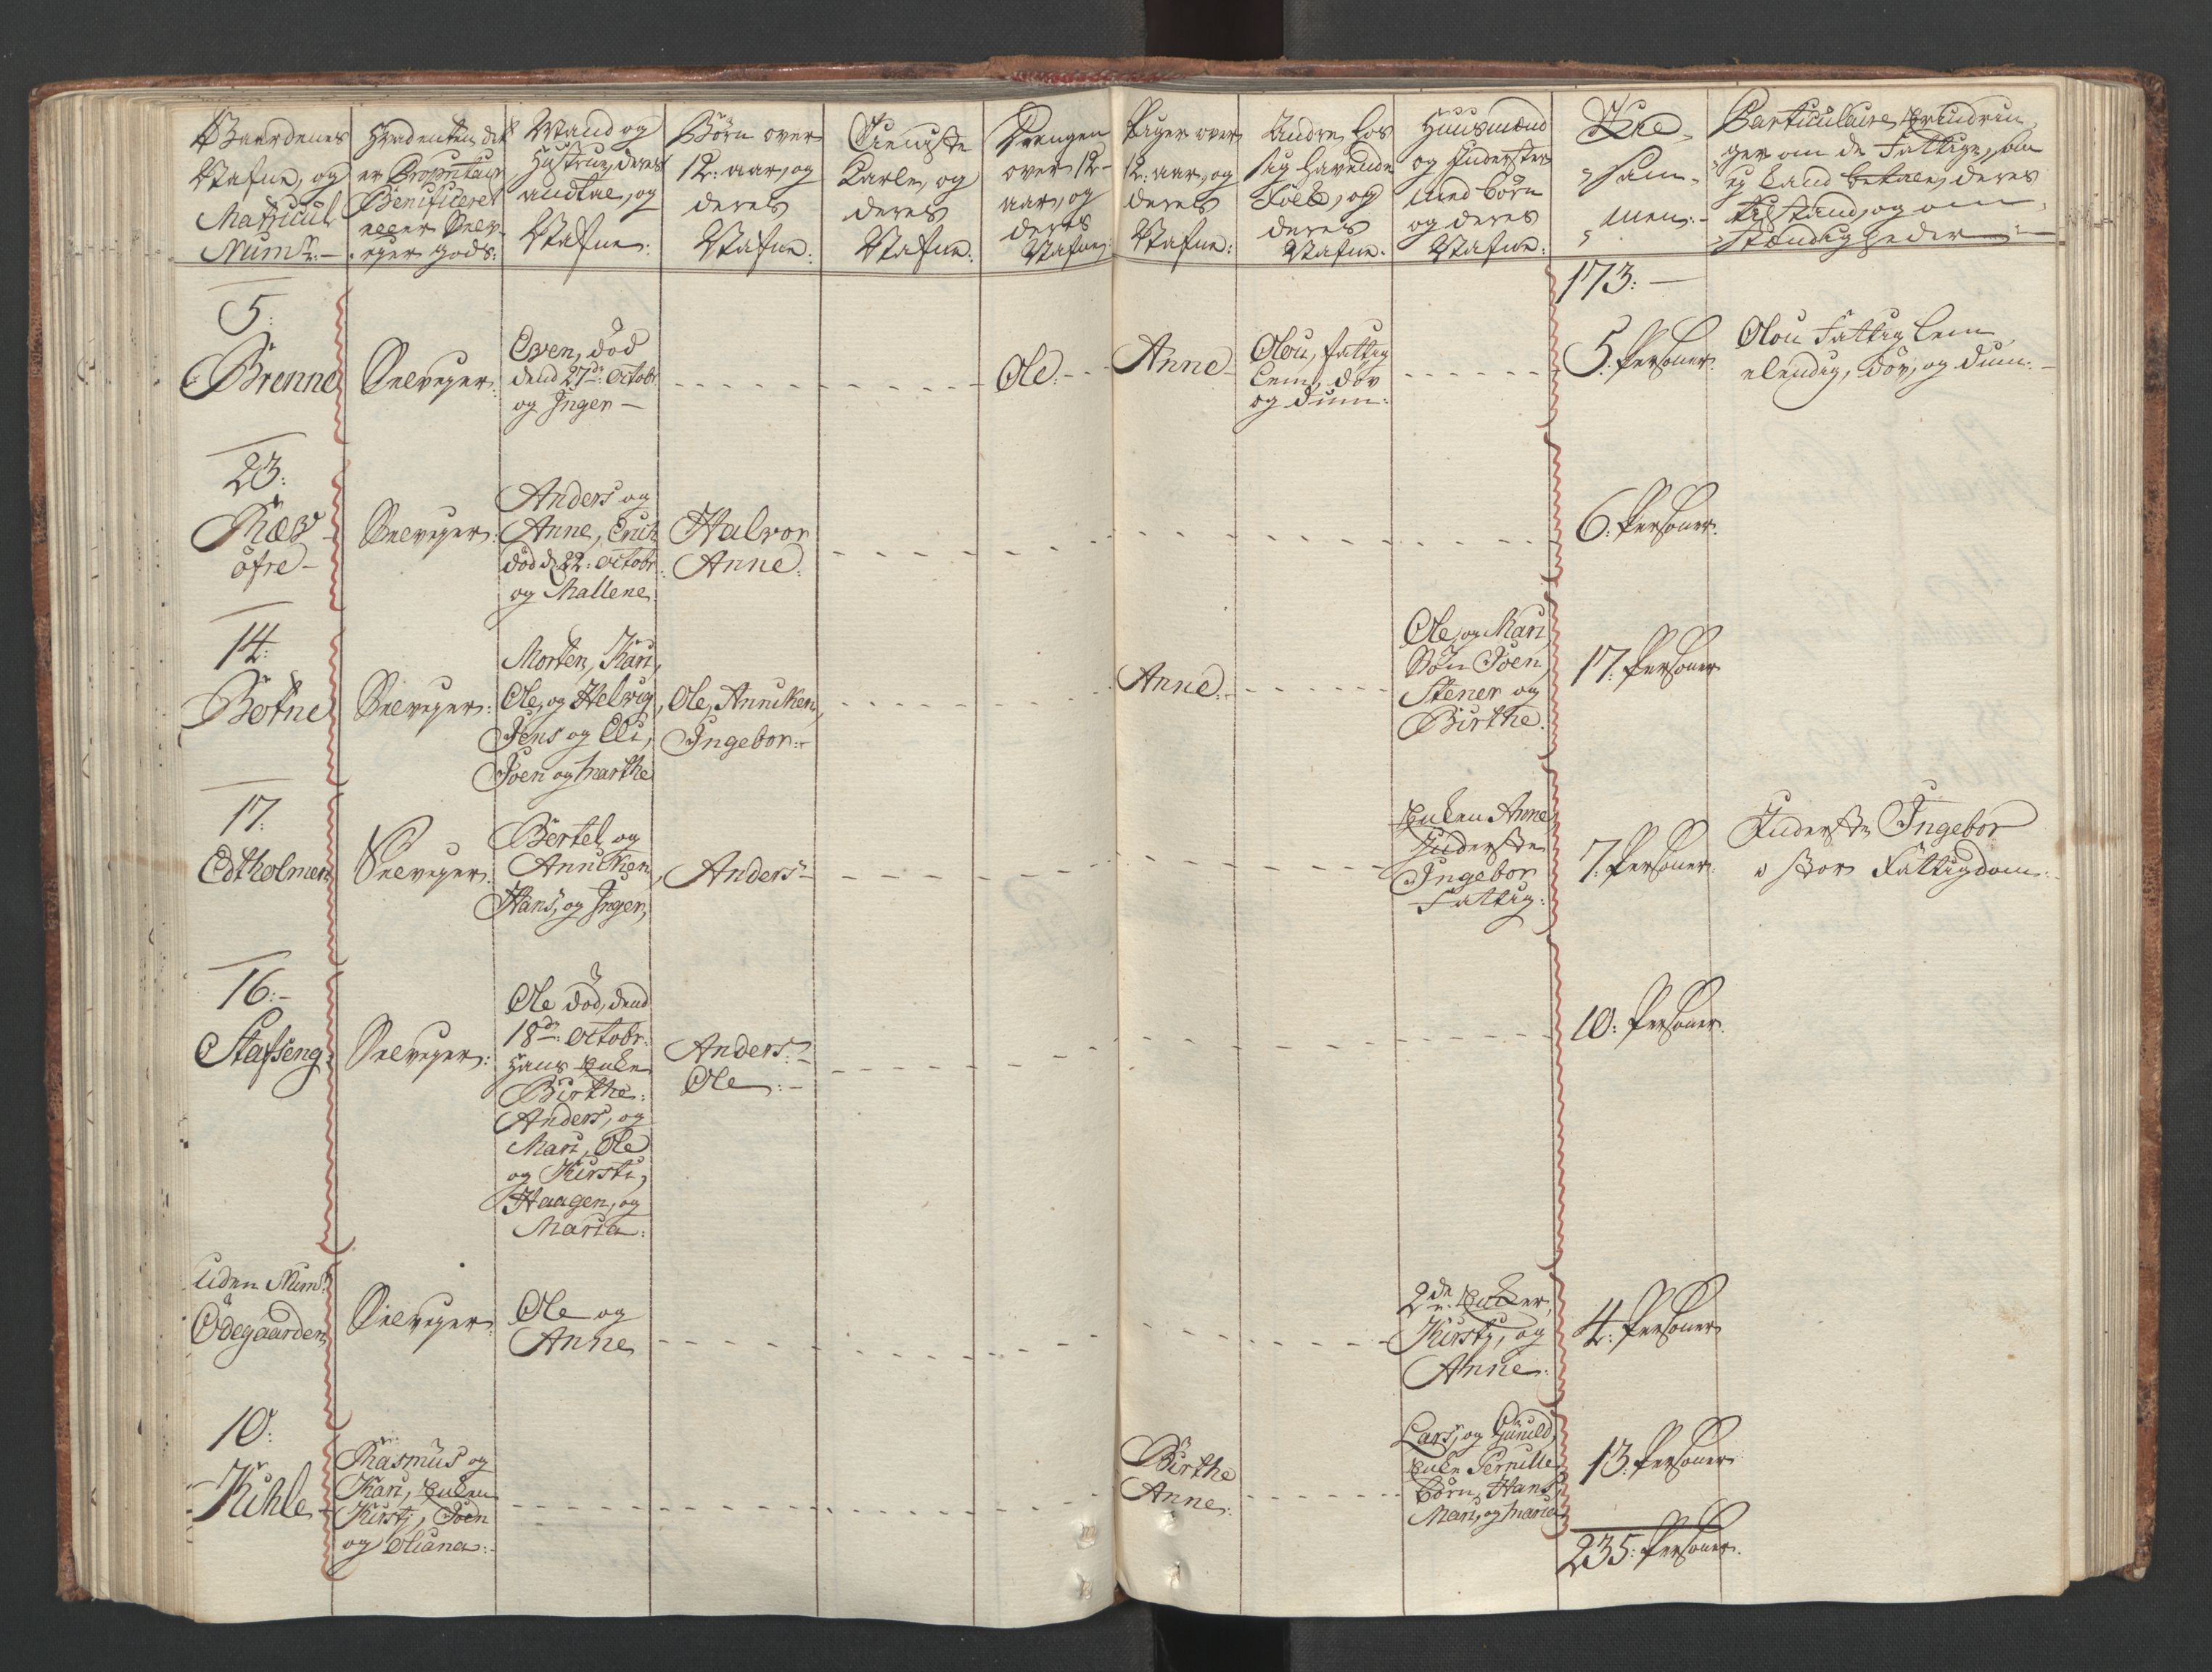 Gaardenes
Nafne, og
Matricul
Num̅r:
Hvad enten det
er Propritair
Benificeret
eller Selv-
eyer gods:
Mand og
Hustrue, deres
andtal, og
Nafne:
Börn over
12: aar, og
deres
Nafne:
Tieniste
Karle, og
deres
Nafne:
Drengen
over 12-
aar, og
deres
Nafne:
Piger over
12: aar, og
deres
Nafne:
Andre, hos
sig havende
Folk, og
deres
Nafne:
Huusmænd
og Inderster
med börn
og deres
Nafne:
Sam-
men:
Particulaire Erindrin-
ger om de Fattige, som
ey kand betale, deres
tilstand, og om-
stændigheder
173:
5:
Brenne
Selveyer:
Even, död
dend 27de: Octobr
og Inger
Ole:
Anne
Olou, fattig
Lem, döv
og dum:
5: Personer.
Olou Fattig Lem
elendig, döv, og dum:
23:
Ræv
öfre
Selveyer:
Anders og
Anne, Erich
död d: 22: Octobr:
og Mallene:
Halvor
Anne:
6: Personer.
14:
Botne
Selveyer:
Morten, Kari,
Ole, og Helvig,
Jens og Eli,
Joen og Marthe
Ole, Anniken,
Ingebor:
Anne:
Ole, og Mari
Sön Joen
Stener og
Birthe:
17: Personer
17:
Edtholmen
Selveyer:
Bertel og
Anniken,
Hans, og Inger,
Anders
Enken Anne
Inderste
Ingebor
Fattig:
7: Personer:
Inderste Ingebor
i stor Fattigdom:
16:
Stafseng
Selveyer:
Ole död, dend
18de: Octobr:
Hans Enke
Birthe:
Anders, og
Mari, Ole
og Kirsti,
Haagen, og
Maria:
Anders:
Ole:
10: Personer.
Uden Num̅r:
Ödegaarden
Selveyer:
Ole og
Anne
2de Enker,
Kirsti, og
Anne:
4: Personer
10:
Kihle
Rasmus og
Kari, Enken
Kirsti, Joen
og Oliana:
Birthe
Anne:
Lars, og Gunild,
Enke Pernille
börn, Hans
Mari, og Maria
13: Personer
235: Personer.